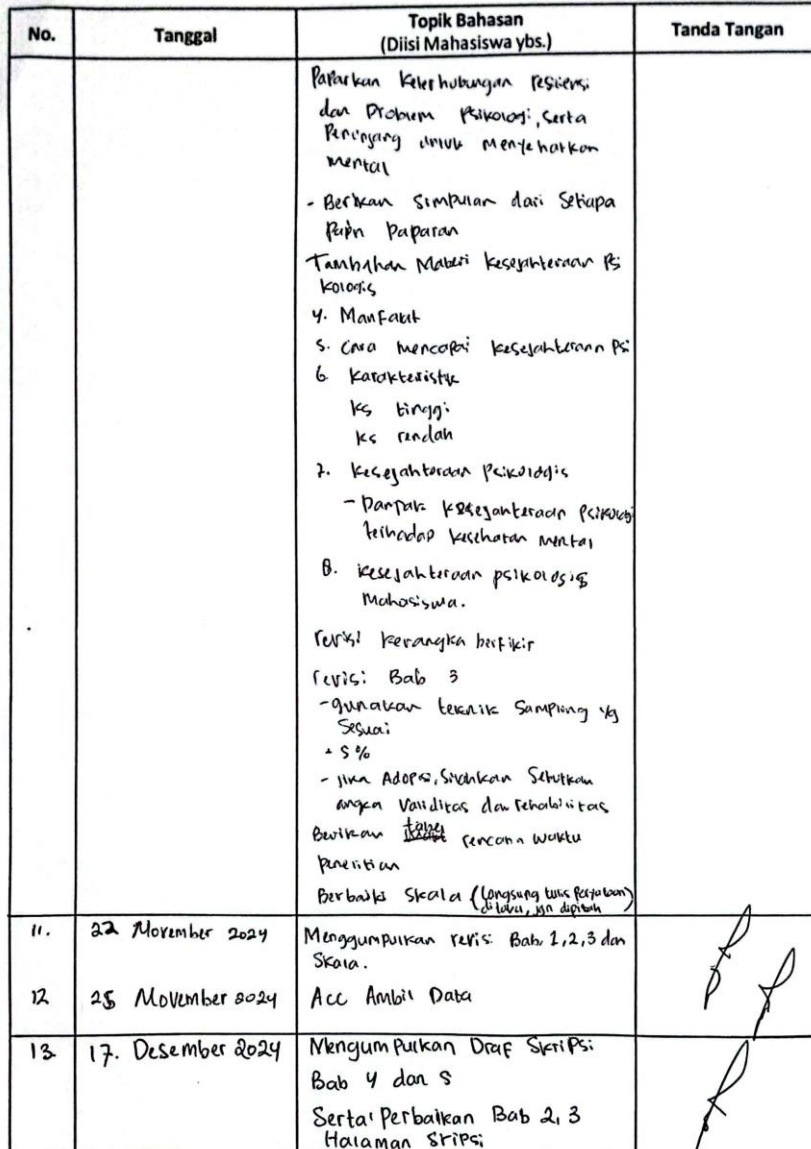 No. Tanggal Topik Bahasan Tanda Tangan
(Diisi Mahasiswa ybs.)
Paparkan Keterhubungan resiliensi
dan Problem Psikologi, serta
untuk Menyehatkan
mental
- Berikan Simpulan dari Setiap
Paparan
Tambahan Materi kesejahteraan Psi
kologis
4. Manfaat
5. Cara mencapai kesejahteraan Psi
6. Karakteristik
ks tinggi
ks rendah
7. Kesejahteraan Psikologis
- Dampak kesejahteraan Psikologi
terhadap kesehatan mental
8. kesejahteraan psikologis
Mahasiswa.
revisi kerangka berfikir
revisi Bab 3
- gunakan teknik Sampling yg
Sesuai
5%
- jika Adopsi, Silahkan Sebutkan
angka Validitas dan rehabilitas
Berikan tabel rencana waktu
penelitian
Berbaiki Skala (Langsung tulis
11. 22 November 2024 Menggumpulkan revisi Bab. 1,2,3 dan
Skala.
12 25 November 2024 Acc Ambil Data
13. 17. Desember 2024 Mengumpulkan Draf Skripsi
Bab 4 dan 5
Serta Perbaikan Bab 2, 3
Halaman Sripsi